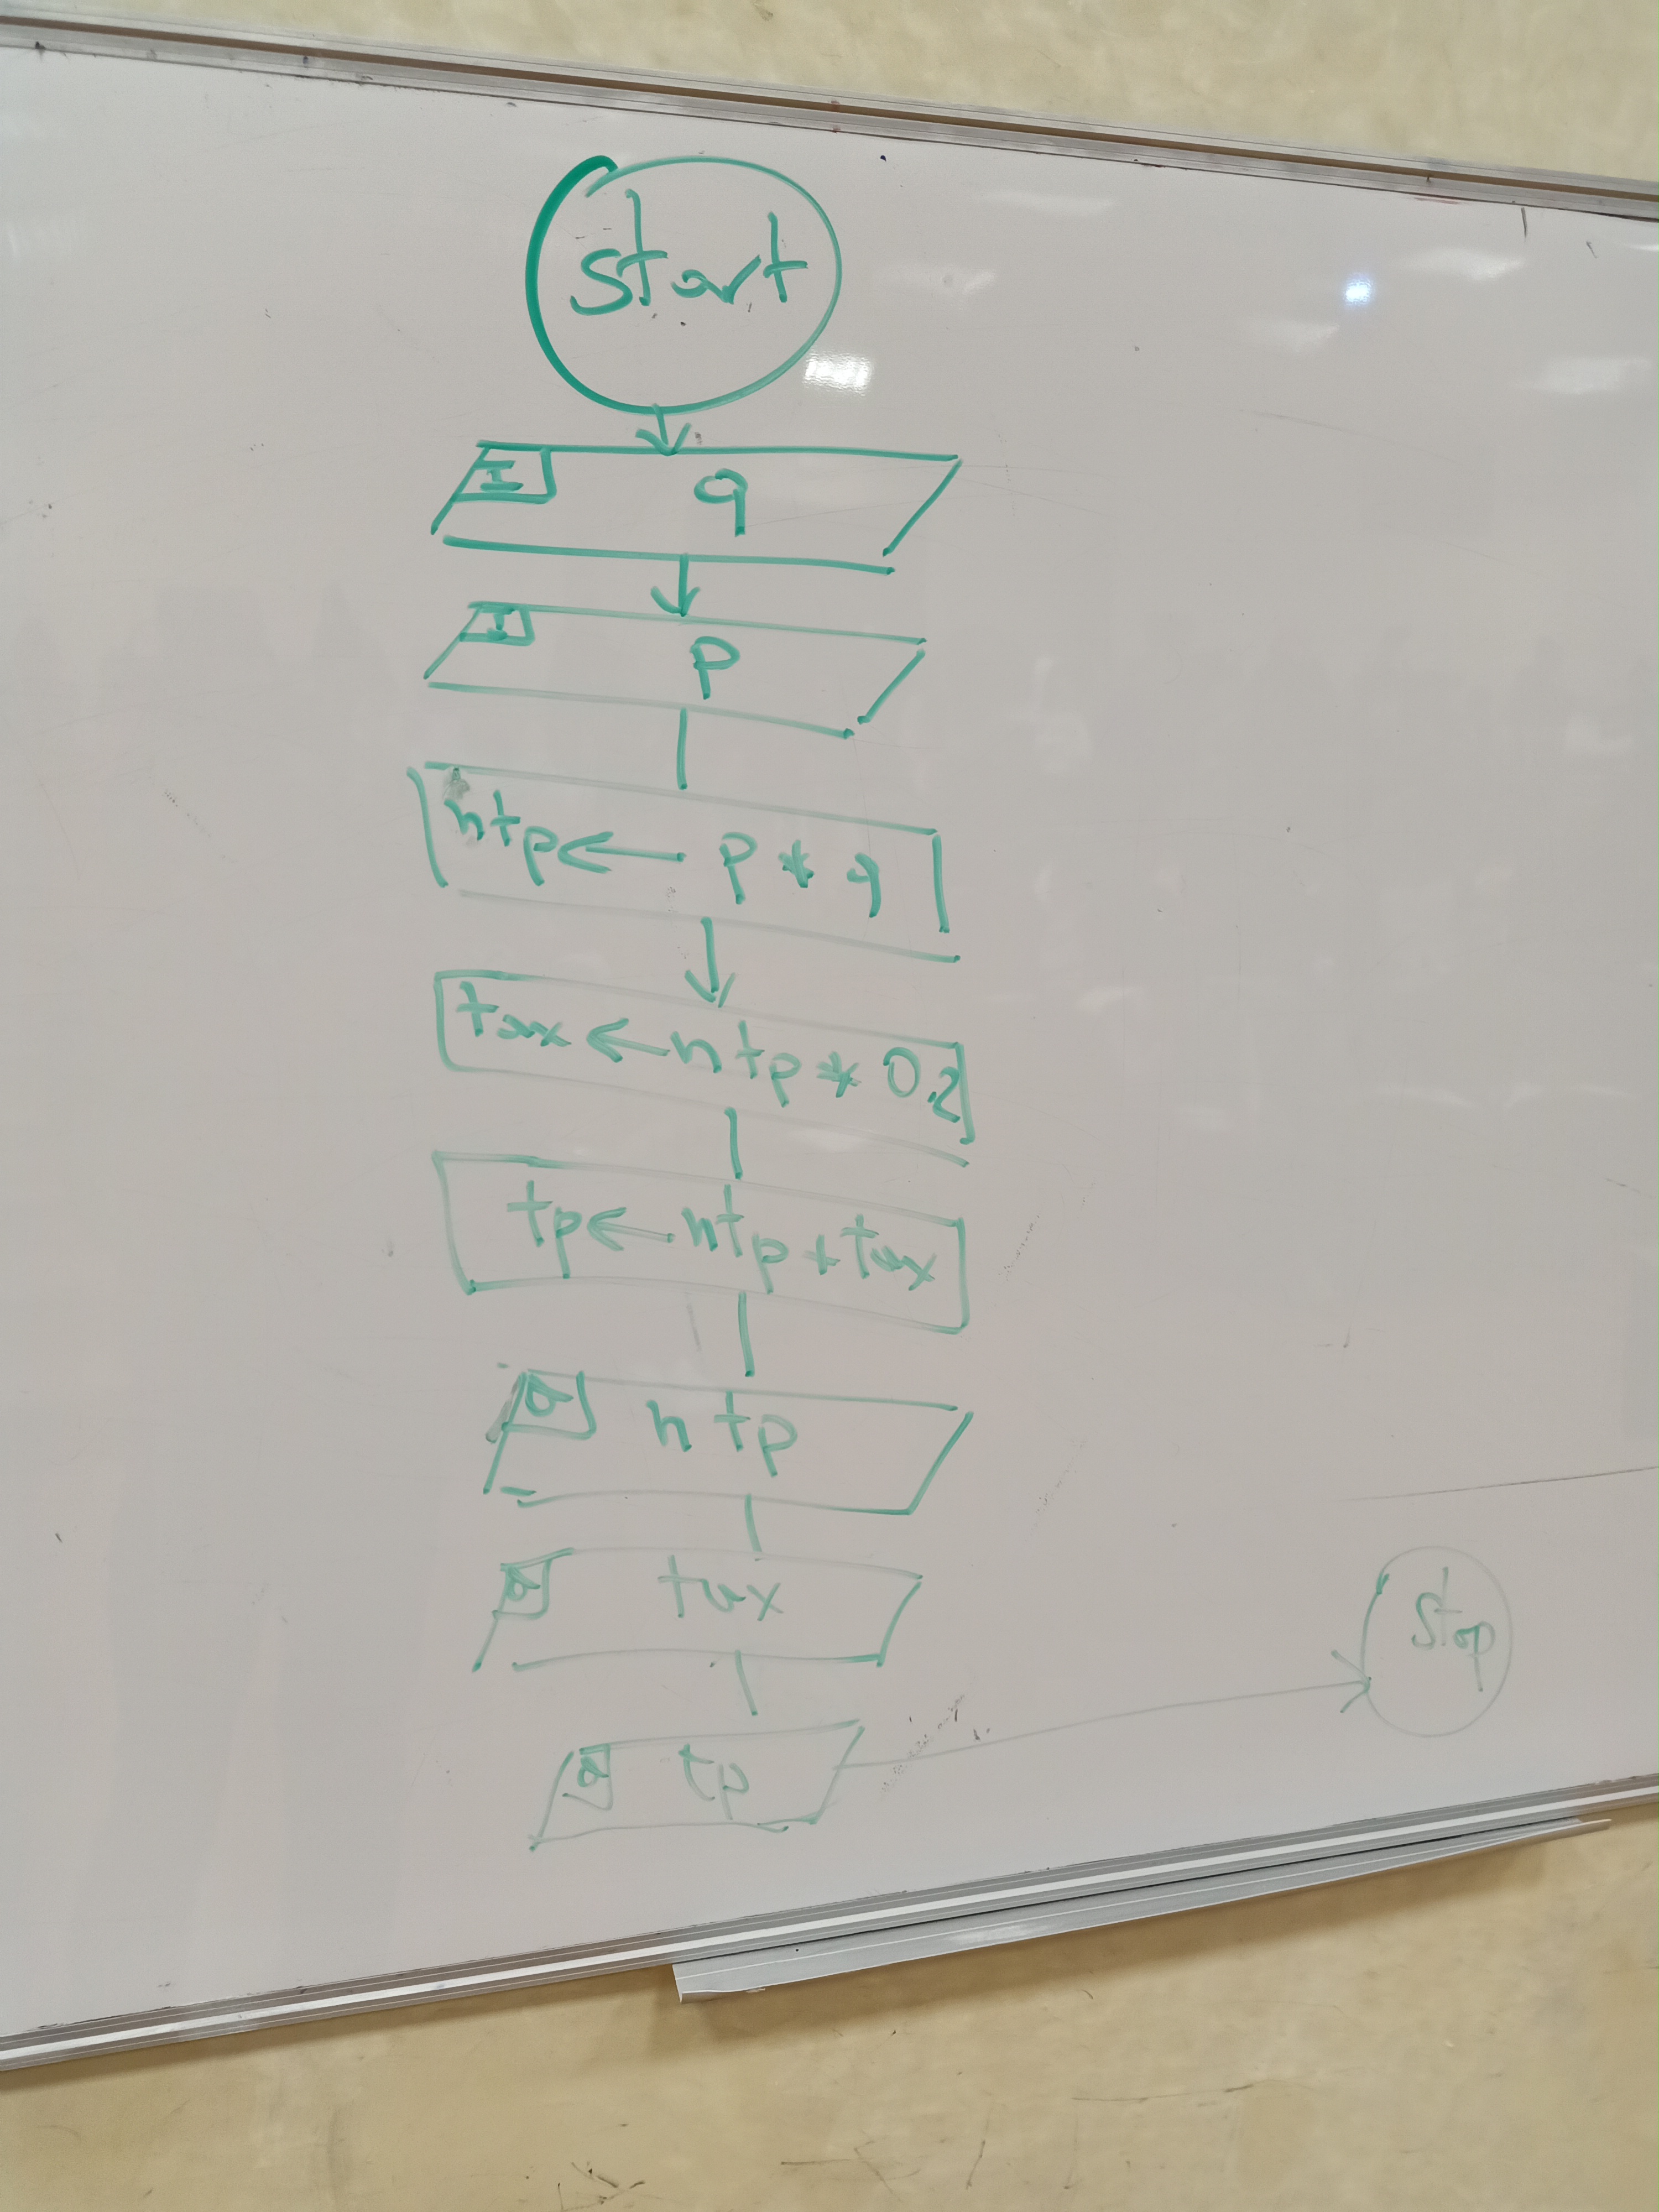 Start
I q
I p
ntp ← p * q
tax ← ntp * 0.2
tp ← ntp + tax
O ntp
O tax
O tp
Stop